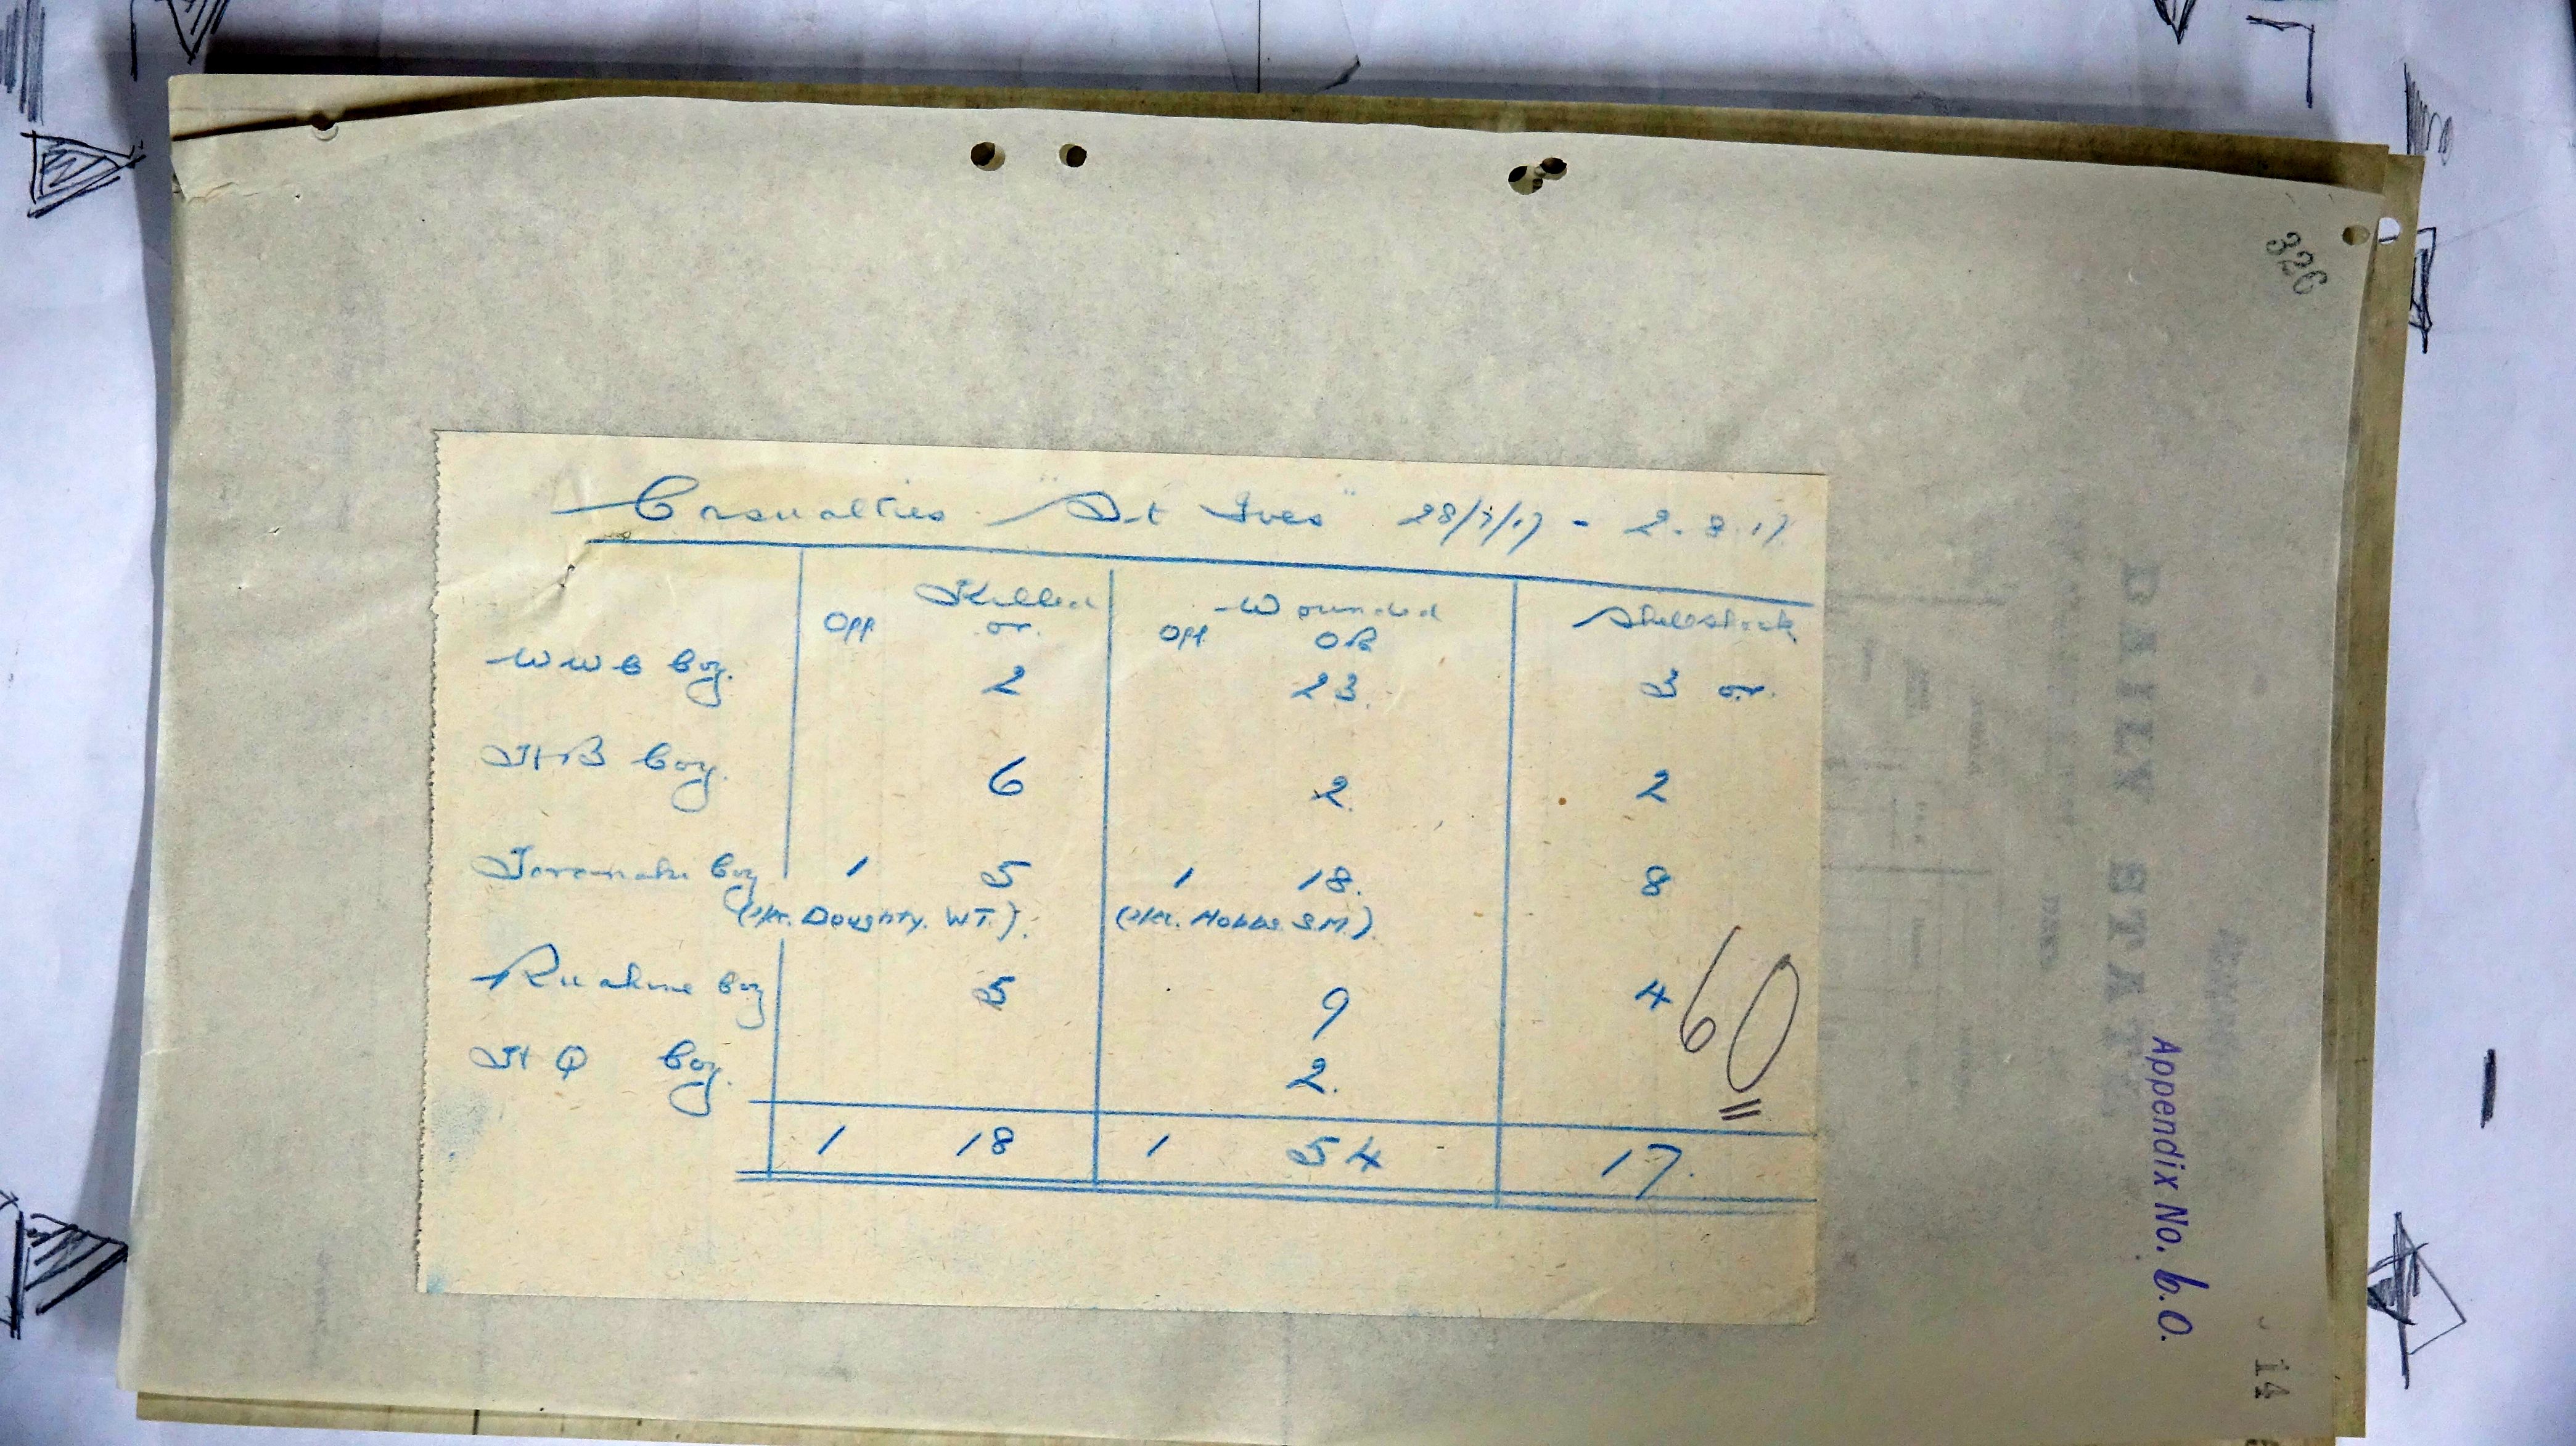 326
Casualties "St Ives" 28/7/17 - 2.8.17.
Killed Wounded Shellshock
Off or. Off OR
WWC Coy. 2 23. 3 or.
HB Coy. 6 2. 2
Taranaki Coy 1 5 1 18. 8
(2/Lt. Doughty. W.T.). (2/Lt. Hobbs S.M.).
Ruahine Coy 5 9 4
60
HQ Coy. 2.
1 18 1 54 17.
Appendix No. 60.
DAILY STATE
14